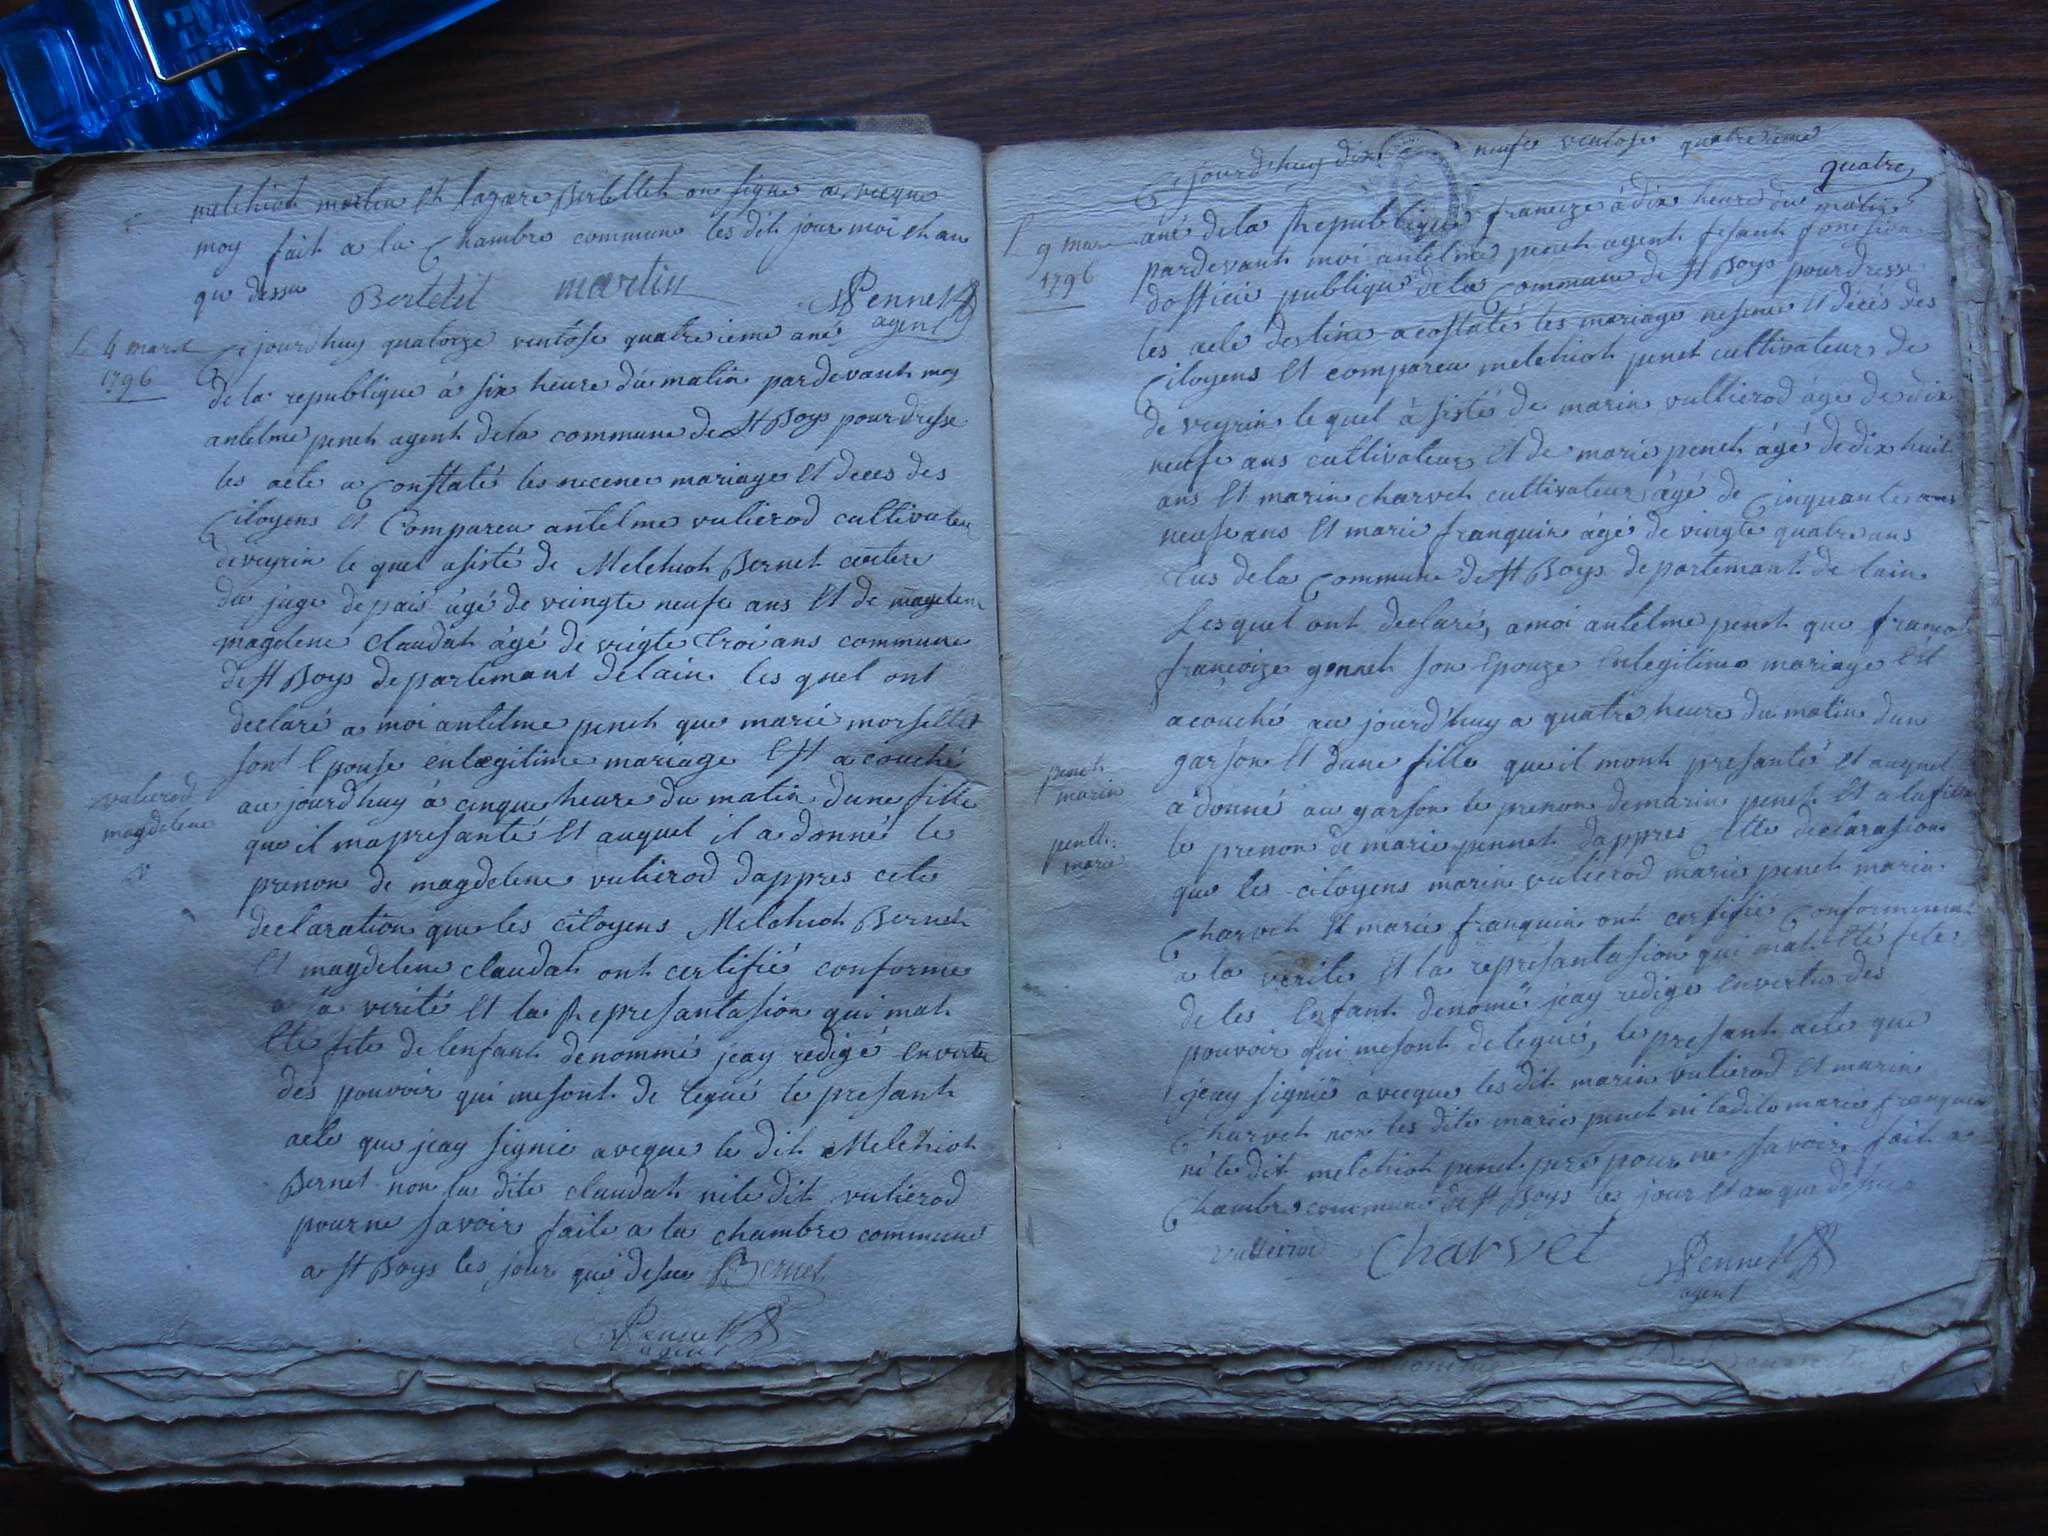 melchiot martin Et lazare Bertellet on signe avecque
moy fait a la Chambre commune les dit jour moi Et an
que dessu
Bertelet martin APennet
agent
Le 4 mars
1796
Ce jourdhuy quatorze ventose quatrieme ané
de la republique à six heure du matin pardevant moy
antelme penet agent de la commune de St Boys pour dresse
les acte a Constaté les necence mariage Et deces des
Citoyens Et Compareu antelme vulierod cultivateu
de veyrin le quel asisté de Melchiot Bernet
du juge de pais âgé de veingte neufe ans Et de magdelene
magdelene claudat âgé de veigte troi ans commune
de St Boys departemant de lain les quel ont
declaré a moi antelme penet que marie morsellet
sont Epouse en legitime mariage Est a couché
au jourdhuy à cinque heure du matin dune fille
vulierod
magdelene
que il ma presanté Et auquel il a donné le
prenon de magdelene vulierod dappres cete
declaration que les citoyens Melchiot Bernet
Et magdelene claudat ont certifié conforme
a la verité Et la Represantasion qui mat
Eté fete de lenfant denommé jeay redigé En vertu
des pouvoir qui me sont de legué le presant
acte que jeay signie aveque le dit Melchiot
Bernet non la dite claudat ni le dit vulierod
pour ne savoir faite a la chambre commune
a St Boys les jour que desu Bernet
APennet
agent
Ce jourdhuy dix neufe ventose quatrieme
quatre
L 9 mars
1796
ané de la Republique francoize à dix heure du matin
pardevant moi antelme penet agent fesant fonction
dofficié publique de la Commune de St Boys pour dresse
les acte destine a costaté les mariage nesence Et décés des
Citoyens Et compareu melchiot penet cultivateur de
de veyrin le quel à sisté de marin vullierod âge de dix
neufe ans cultivateur Et de marie penet âgé de dix huit
ans Et marin charvet cultivateur âgé de Cinquante ans
neufe ans Et marie franquin âgé de vingte quatre ans
tus de la Commune de St Boys departemant de lain
Lesquel ont declaré, a moi antelme penet que
françoize gonnet son Epouze En legitime mariage Est
acouché au jourd'huy a quatre heure du matin dun
garson Et dune fille que il mont presanté Et auquel
penet
marin
à donné au garson le prenon de marin penet Et a la fille
penet
marie
le prenon de marie pennet dappres cette declarasion
que les citoyens marin vulierod marie penet marin
Charvet Et marie franquin ont certifié Conformement
a la verite Et la represantasion qui mat Eté fete
de les Enfant denomé jeay redige En vertu des
pouvoir qui me sont delegué, le presant acte que
jeay signié avecque les dit marin vulierod Et marin
Charvet non les dite marie penet ni ladite marie franquin
ni le dit melchiot penet pere pour ne savoir fait a
Chambre commune de St Boys les jour Et an que desu
vulleirod Charvet APennet
agent